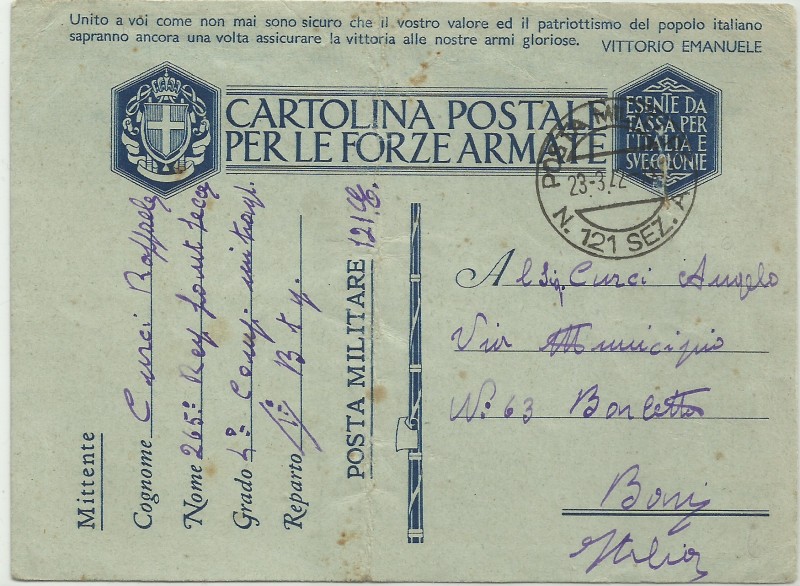 Unito a voi come non mai sono sicuro che il vostro valore ed il patriottismo del popolo italiano
sapranno ancora una volta assicurare la vittoria alle nostre armi gloriose. VITTORIO EMANUELE
CARTOLINA POSTALE
PER LE FORZE ARMATE
ESENTE DA
TASSA PER
L'ITALIA E
SVE COLONIE
POSTA MILITARE
23-3-42
N. 121 SEZ. A
Mittente
Cognome Curci Raffaele
Nome 265º Reg
Grado 4º Comp. mitrag.
Reparto 1º
POSTA MILITARE 121
Al Sig. Curci Angelo
Via Municipio
Nº 63 Barletta
Bari
Italia